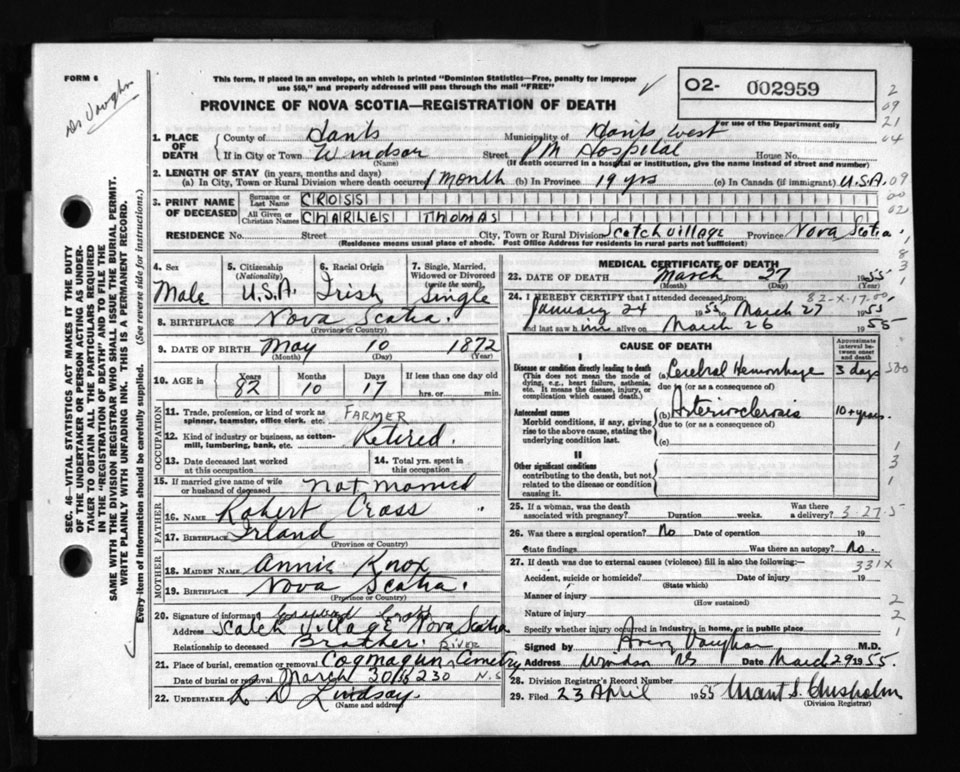 FORM 6
Dr Vaughn
This form, if placed in an envelope, on which is printed "Dominion Statistics—Free, penalty for improper
use $50," and properly addressed will pass through the mail "FREE"
PROVINCE OF NOVA SCOTIA—REGISTRATION OF DEATH
O2- 002959
For use of the Department only
2
09
21
04
09
00
02
1
8
3
1
SEC. 46—VITAL STATISTICS ACT MAKES IT THE DUTY
OF THE UNDERTAKER OR PERSON ACTING AS UNDER-
TAKER TO OBTAIN ALL THE PARTICULARS REQUIRED
IN THE "REGISTRATION OF DEATH" AND TO FILE THE
SAME WITH THE DIVISION REGISTRAR WHO SHALL ISSUE THE BURIAL PERMIT.
WRITE PLAINLY WITH UNFADING INK. THIS IS A PERMANENT RECORD.
Every item of information should be carefully supplied. (See reverse side for instructions.)
1. PLACE OF DEATH County of Hants Municipality of Hants West
If in City or Town Windsor Street P M Hospital House No.
(Name) (If death occurred in a hospital or institution, give the name instead of street and number)
2. LENGTH OF STAY (in years, months and days)
(a) In City, Town or Rural Division where death occurred 1 month (b) In Province 19 yrs (c) In Canada (if immigrant) U.S.A.
3. PRINT NAME OF DECEASED Surname or Last Name CROSS
All Given or Christian Names CHARLES THOMAS
RESIDENCE No. Street City, Town or Rural Division Scotch Village Province Nova Scotia
(Residence means usual place of abode. Post Office Address for residents in rural parts not sufficient)
4. Sex Male
5. Citizenship (Nationality) U.S.A.
6. Racial Origin Irish
7. Single, Married, Widowed or Divorced (write the word) Single
8. BIRTHPLACE Nova Scotia.
(Province or Country)
9. DATE OF BIRTH May 10 1872
(Month) (Day) (Year)
10. AGE in Years 82 Months 10 Days 17 If less than one day old
hrs. or min.
OCCUPATION
11. Trade, profession, or kind of work as spinner, teamster, office clerk. etc. FARMER
12. Kind of industry or business, as cotton-mill, lumbering, bank, etc. Retired.
13. Date deceased last worked at this occupation
14. Total yrs. spent in this occupation
15. If married give name of wife or husband of deceased Not Married
FATHER
16. NAME Robert Cross
17. BIRTHPLACE Irland
(Province or Country)
MOTHER
18. MAIDEN NAME Annie Knox
19. BIRTHPLACE Nova Scotia.
(Province or Country)
20. Signature of informant
Address Scotch Village Nova Scotia
Relationship to deceased Brother.
21. Place of burial, cremation or removal Cogmagun River Cemetry
Date of burial or removal March 30/55 230 N.S
22. UNDERTAKER R D Lindsay.
(Name and address)
MEDICAL CERTIFICATE OF DEATH
23. DATE OF DEATH March 27 1955
(Month) (Day)
82-X-17-00
24. I HEREBY CERTIFY that I attended deceased from:
January 24 1955 to March 27 1955
and last saw him alive on March 26 1955
CAUSE OF DEATH
Approximate interval between onset and death
I
Disease or condition directly leading to death
(This does not mean the mode of dying, e.g., heart failure, asthenia, etc. It means the disease, injury, or complication which caused death.)
(a) Cerebral Hemorrhage 3 days
due to (or as a consequence of)
Antecedent causes
Morbid conditions, if any, giving rise to the above cause, stating the underlying condition last.
(b) Arteriosclerosis 10+years.
due to (or as a consequence of)
(c)
II
Other significant conditions
contributing to the death, but not related to the disease or condition causing it.
3
1
25. If a woman, was the death associated with pregnancy? Duration weeks. Was there a delivery? 3-27-5
26. Was there a surgical operation? No Date of operation 19
State findings Was there an autopsy? No.
27. If death was due to external causes (violence) fill in also the following:— 331X
Accident, suicide or homicide? Date of injury 19
(State which)
Manner of injury
(How sustained)
Nature of injury
Specify whether injury occurred in industry, in home, or in public place
2
2
1
Signed by Avery Vaughan M.D.
Address Windsor NS Date March 29 1955.
28. Division Registrar's Record Number
29. Filed 23 April 1955 Grant S. Chisholm
(Division Registrar)